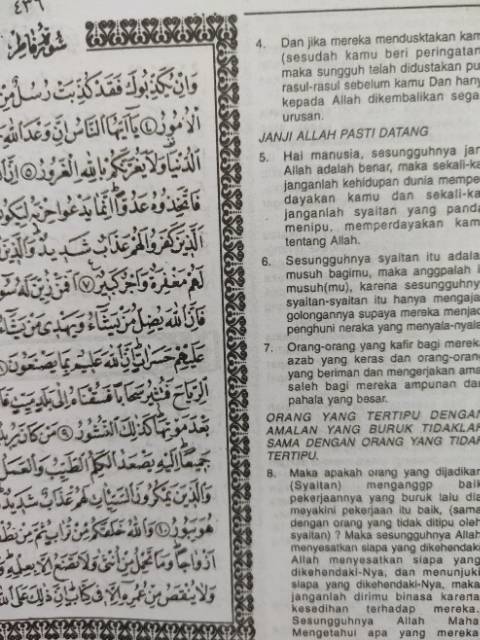 ٤٣٦
سورة فاطر
وَاِنْ يُّكَذِّبُوْكَ فَقَدْ كُذِّبَتْ رُسُلٌ مِّنْ
الْاُمُوْرُ ۝٤ يٰٓاَيُّهَا النَّاسُ اِنَّ وَعْدَ اللّٰهِ
الدُّنْيَا وَلَا يَغُرَّنَّكُمْ بِاللّٰهِ الْغَرُوْرُ ۝٥ اِنَّ
فَاتَّخِذُوْهُ عَدُوًّا اِنَّمَا يَدْعُوْا حِزْبَهٗ لِيَكُوْ
اَلَّذِيْنَ كَفَرُوْا لَهُمْ عَذَابٌ شَدِيْدٌ وَالَّذِيْنَ
لَهُمْ مَّغْفِرَةٌ وَّاَجْرٌ كَبِيْرٌ ۝٧ اَفَمَنْ زُيِّنَ لَهٗ سُوْ
فَاِنَّ اللّٰهَ يُضِلُّ مَنْ يَّشَآءُ وَيَهْدِيْ مَنْ يَّشَآءُ
عَلَيْهِمْ حَسَرٰتٍ اِنَّ اللّٰهَ عَلِيْمٌ بِمَا يَصْنَعُوْنَ
الرِّيٰحَ فَتُثِيْرُ سَحَابًا فَسُقْنٰهُ اِلٰى بَلَدٍ مَّيِّتٍ
بَعْدَ مَوْتِهَا كَذٰلِكَ النُّشُوْرُ ۝٩ مَنْ كَانَ يُرِيْدُ
جَمِيْعًا اِلَيْهِ يَصْعَدُ الْكَلِمُ الطَّيِّبُ وَالْعَمَلُ
وَالَّذِيْنَ يَمْكُرُوْنَ السَّيِّاٰتِ لَهُمْ عَذَابٌ شَدِيْدٌ
هُوَ يَبُوْرُ ۝١٠ وَاللّٰهُ خَلَقَكُمْ مِّنْ تُرَابٍ ثُمَّ مِنْ نُّطْفَ
اَزْوَاجًا وَمَا تَحْمِلُ مِنْ اُنْثٰى وَلَا تَضَعُ اِلَّا بِعِلْمِهٖ وَ
وَّلَا يُنْقَصُ مِنْ عُمُرِهٖٓ اِلَّا فِيْ كِتٰبٍ اِنَّ ذٰلِكَ عَلَى اللّٰهِ
4. Dan jika mereka mendusktakan kam
(sesudah kamu beri peringatan
maka sungguh telah didustakan pu
rasul-rasul sebelum kamu Dan hany
kepada Allah dikembalikan sega
urusan.
JANJI ALLAH PASTI DATANG
5. Hai manusia, sesungguhnya jan
Allah adalah benar, maka sekali-ka
janganlah kehidupan dunia mempe
dayakan kamu dan sekali-ka
janganlah syaitan yang panda
menipu, memperdayakan kam
tentang Allah.
6. Sesungguhnya syaitan itu adala
musuh bagimu, maka anggpalah i
musuh(mu), karena sesungguhny
syaitan-syaitan itu hanya mengaja
golongannya supaya mereka menjad
penghuni neraka yang menyala-nyala
7. Orang-orang yang kafir bagi mereka
azab yang keras dan orang-orang
yang beriman dan mengerjakan ama
saleh bagi mereka ampunan dan
pahala yang besar.
ORANG YANG TERTIPU DENGAN
AMALAN YANG BURUK TIDAKLAH
SAMA DENGAN ORANG YANG TIDAK
TERTIPU.
8. Maka apakah orang yang dijadikan
(Syaitan) menganggp baik
pekerjaannya yang buruk lalu dia
meyakini pekerjaan itu baik, (sama
dengan orang yang tidak ditipu oleh
syaitan) ? Maka sesungguhnya Allah
menyesatkan siapa yang dikehendaki
Allah menyesatkan siapa yang
dikehendaki-Nya, dan menunjuki
siapa yang dikehendaki-Nya, maka
janganlah dirimu binasa karena
kesedihan terhadap mereka.
Sesungguhnya Allah Maha
Mengetahui apa yang mereka